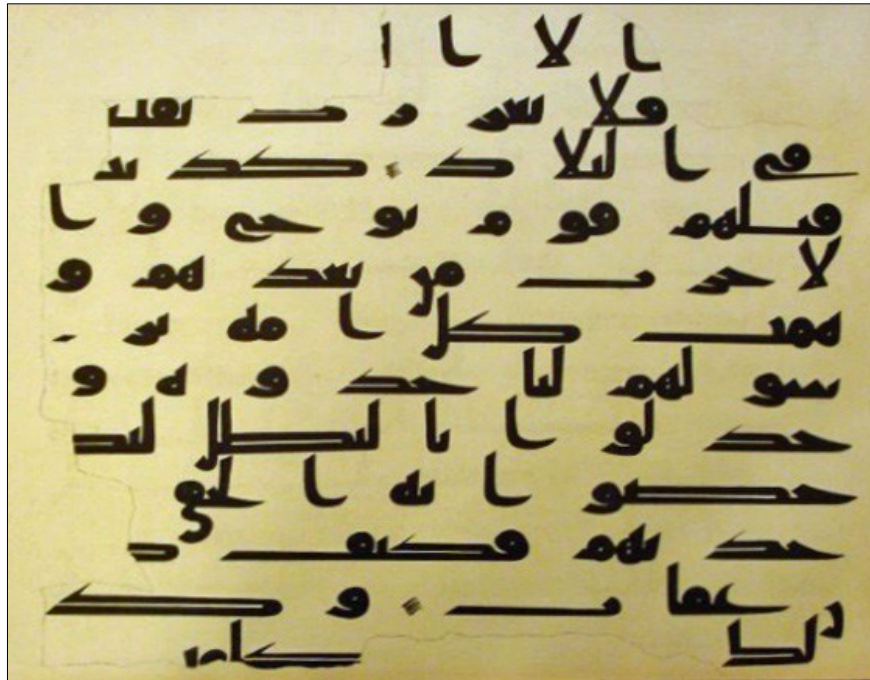 الا ا
فلا يغررك تقلب
في البلاد كذبت
قبلهم قوم نوح وا
لاحزب من بعدهم و
همت كل امه بر
سولهم لياخذوه و
جدلوا بالبطل ليد
حضوا به الحق
خذتهم فكيف كا
ن عقاب وكذ
لك